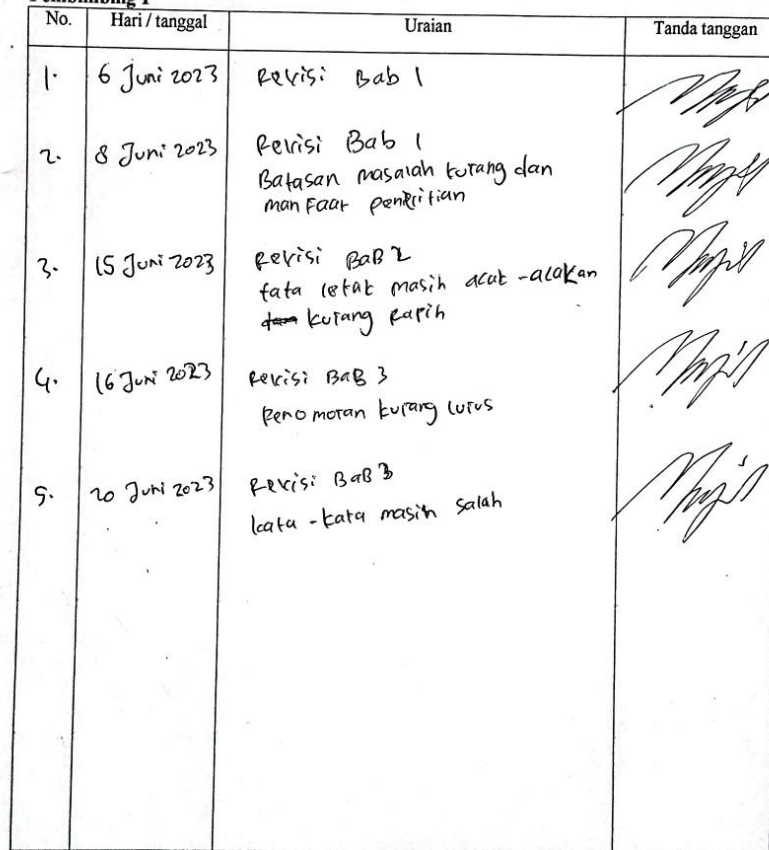 Pembimbing 1
No. Hari / tanggal Uraian Tanda tanggan
1. 6 Juni 2023 Revisi Bab 1
2. 8 Juni 2023 Revisi Bab 1
Batasan masalah kurang dan
manfaat penelitian
3. 15 Juni 2023 Revisi BaB 2
tata letak masih acak-acakan
dan kurang Rapih
4. 16 Juni 2023 Revisi BaB 3
Penomoran kurang lurus
5. 20 Juni 2023 Revisi BaB 3
kata-kata masih salah